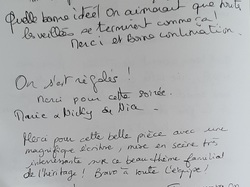 Quelle bonne idée! On aimerait que toutes
les veillées se terminent comme ça!
Merci et Bonne continuation.
On s'est régalés!
Merci pour cette soirée.
Marie
Merci pour cette belle pièce avec une
magnifique écriture, mise en scène très
intéressante sur ce beau thème familial
de l'héritage! Bravo à toute l'équipe!